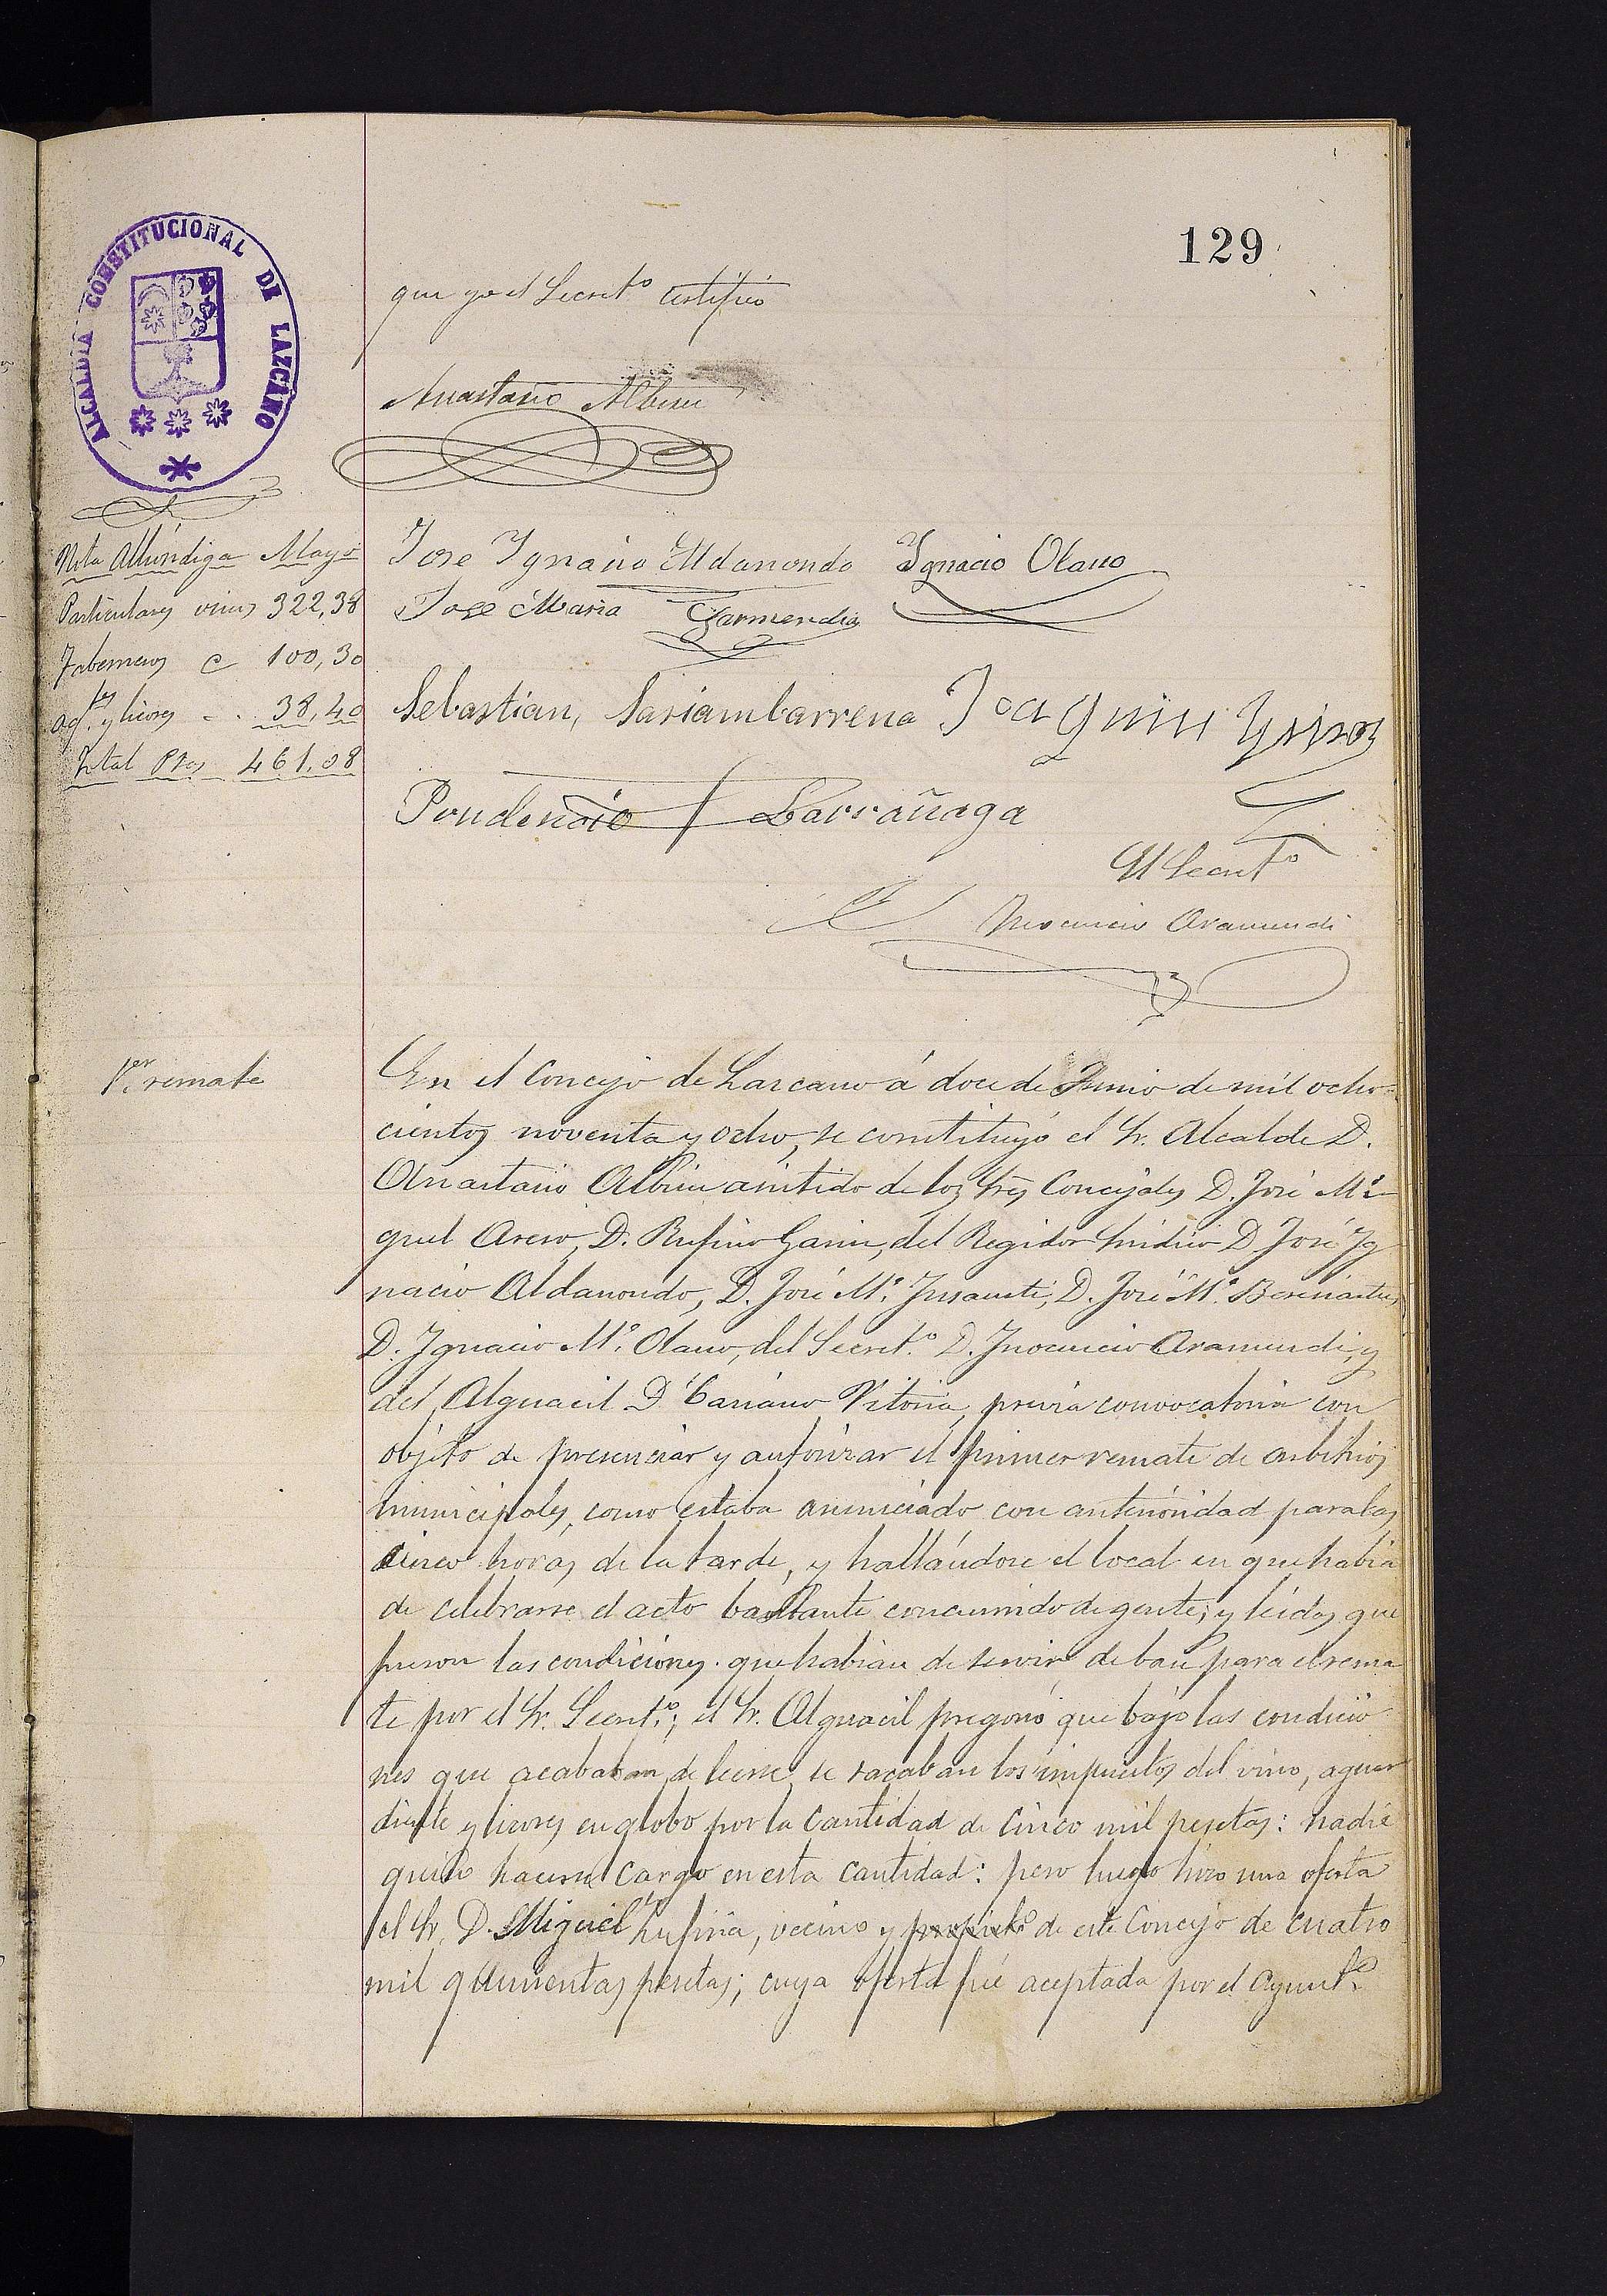 129
ALCALDÍA CONSTITUCIONAL DE LAZCANO
que yo el Secret.º certifico
Anastasio Albisu
Nota Alhóndiga Mayo
Particulares vinos 322,38
Taberneros c 100,30
Ag.tes y licores - . 38,40
Total Ptas 461.08
Jose Ygnacio Aldanondo Ygnacio Olano
Jose Maria Garmendia
Sebastian, Sasiambarrena Joaquin
Prudencio Larrañaga
El Secret.º
Inocencio Aramendi
1.er remate
En el Concejo de Lazcano á doce de Junio de mil ocho-
cientos noventa y ocho, se constituyó el Sr. Alcalde D.
Anastasio Albisu asistido de los Sres Concejales D. José Mi-
guel D. Rufino Garin, del Regidor Síndico D. José Ig
nacio Aldanondo, D. José M.ª Insausti, D. José M.ª
D. Ignacio M.ª Olano, del Secret.º D. Inocencio Aramendi, y
del Alguacil D. Vitoria, previa convocatoria con
objeto de presenciar y autorizar el primer remate de arbitrios
municipales, como estaba anunciado con anterioridad para las
cinco horas de la tarde, y hallándose el local en que había
de celebrarse el acto bastante concurrido de gente; y leidas que
fueron las condiciones que habian de servir de base para el rema
te por el Sr. Secret.º; el Sr. Alguacil pregonó que bajo las condicio
nes que acababan de leerse se sacaban los impuestos del vino, aguar
diente y licores en globo por la cantidad de cinco mil pesetas: nadie
quiso hacerse cargo en esta cantidad: pero luego hizo una oferta
el Sr. D. Miguel vecino y de este Concejo de cuatro
mil quinientas pesetas; cuya oferta fué aceptada por el Ayunt.º